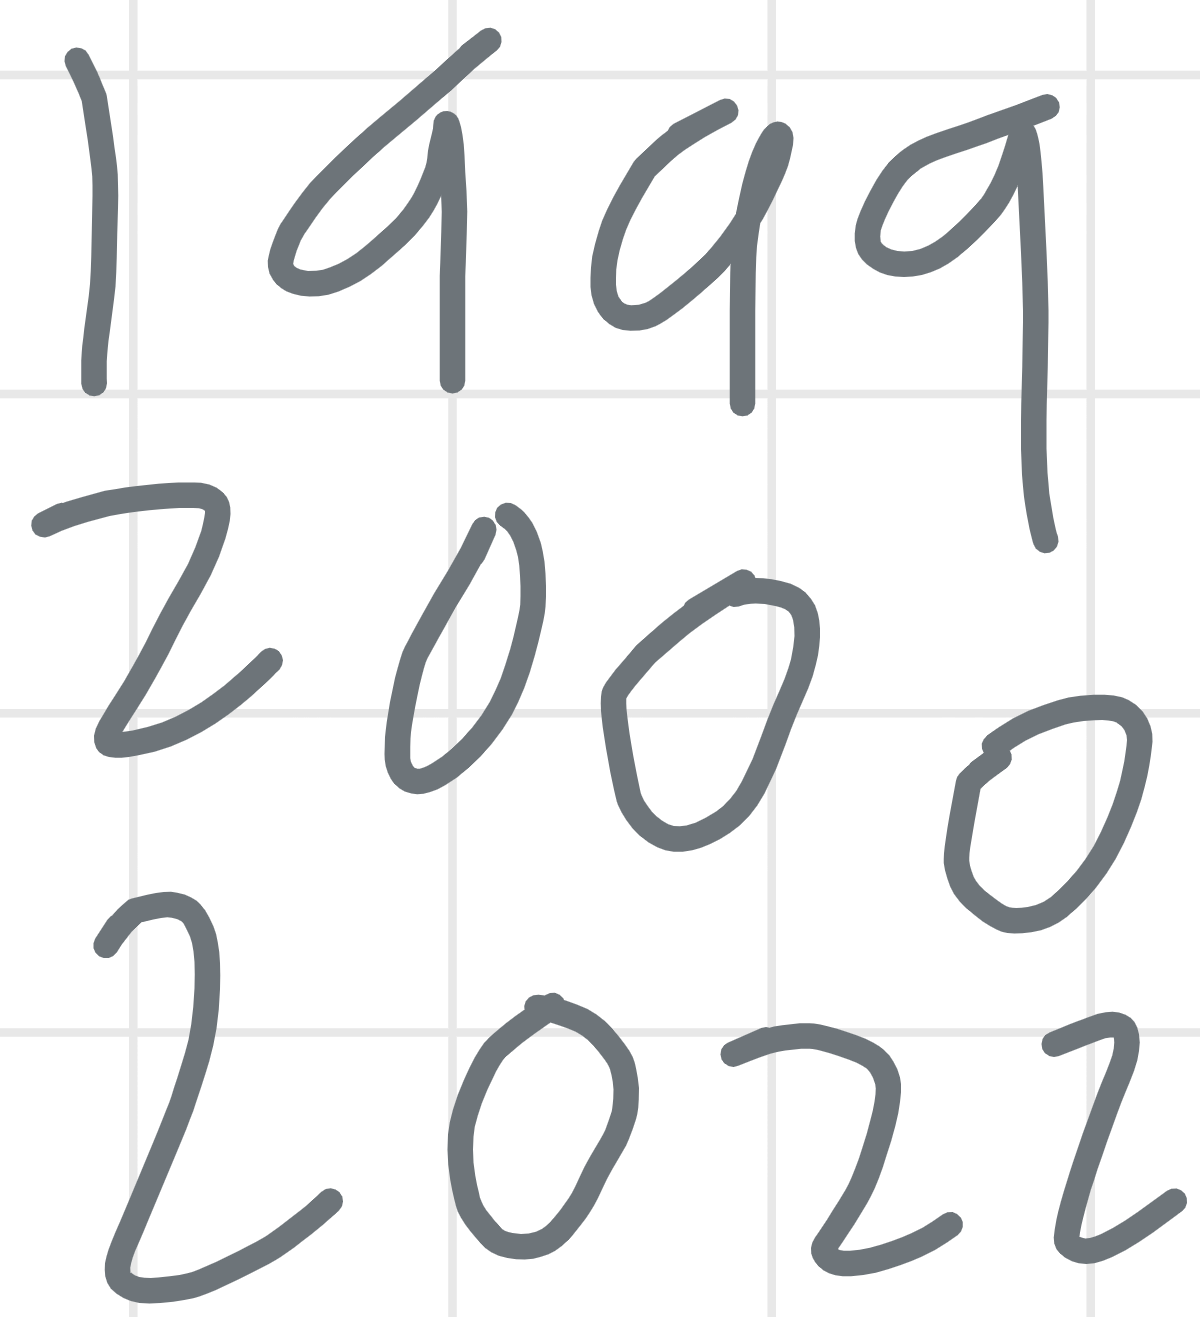 1999
2000
2022